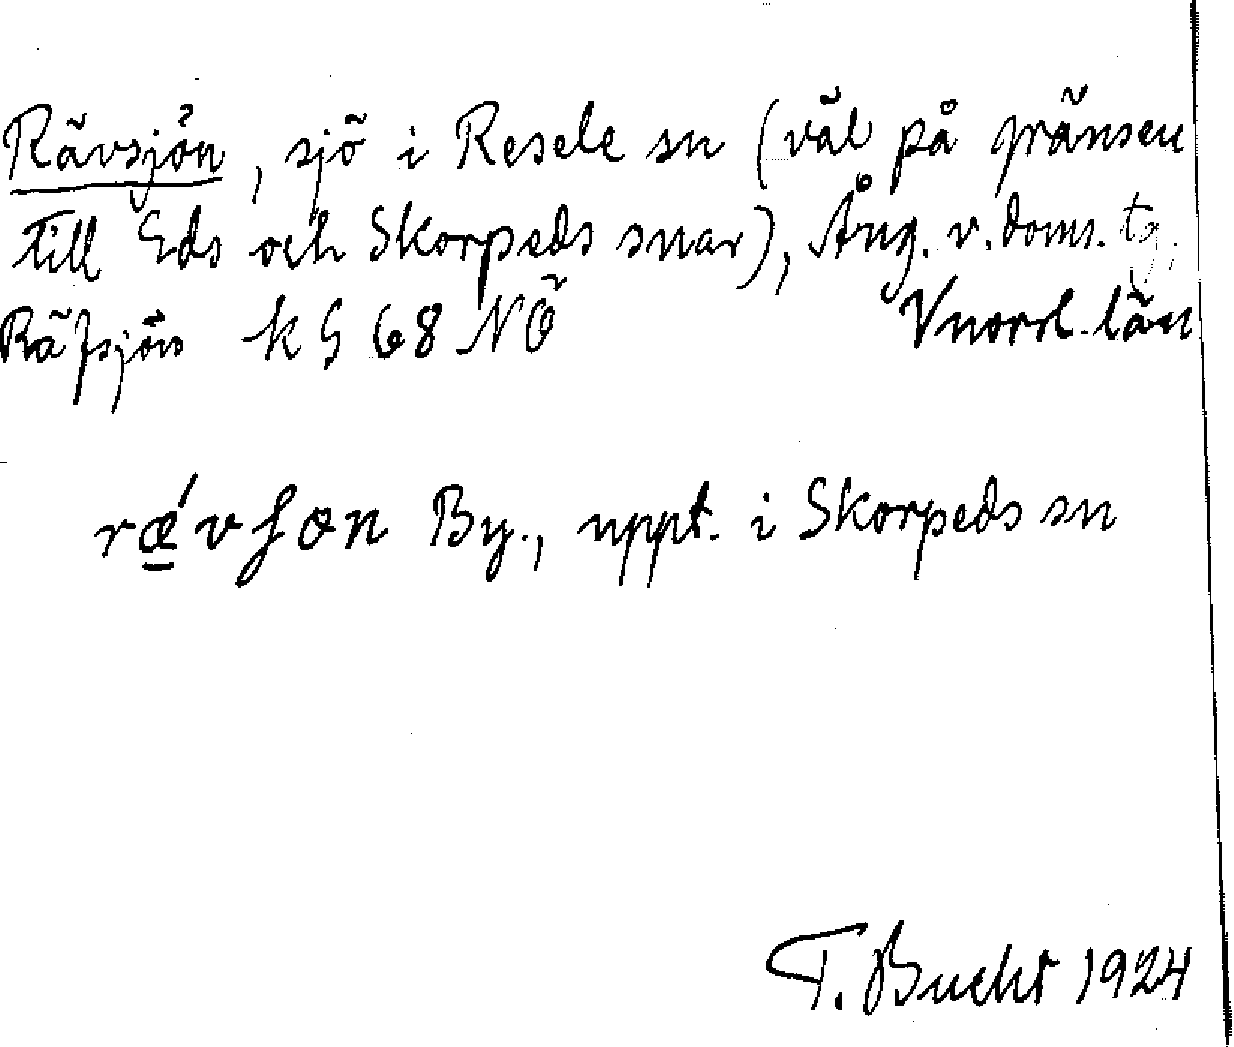 Rävsjön, sjö i Resele sn (väl på gränsen
till Eds och Skorpeds snar), Ång. v. doms. tg,
Räfsjön kG 68 NÖ Vnorrl. län
rǽvʃøn By., uppt. i Skorpeds sn
T. Bucht 1924